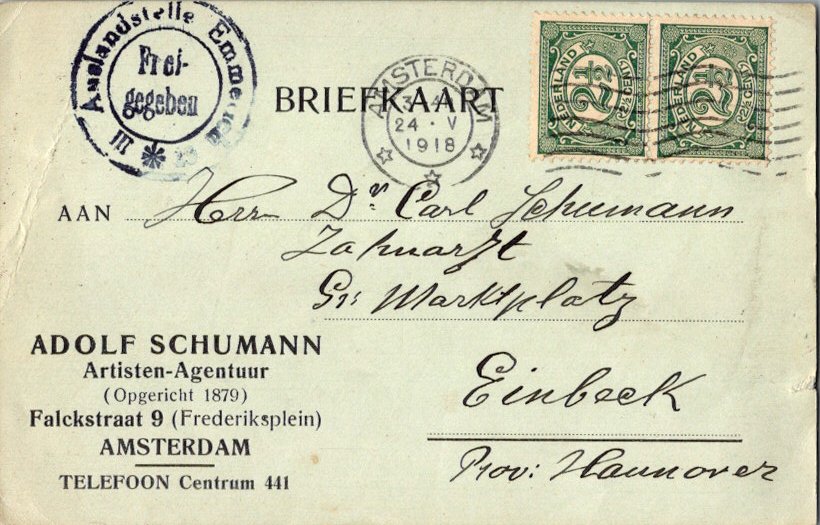 Auslandstelle Emmerich
Frei-
gegeben
III
BRIEFKAART
AMSTERDAM
24 · V
1918
NEDERLAND
2½
(2½ CENT)
NEDERLAND
2½
(2½ CENT)
AAN Herrn Dr. Carl Schumann
Zahnarzt
Gr: Marktplatz
Einbeck
Prov: Hannover
ADOLF SCHUMANN
Artisten-Agentuur
(Opgericht 1879)
Falckstraat 9 (Frederiksplein)
AMSTERDAM
TELEFOON Centrum 441